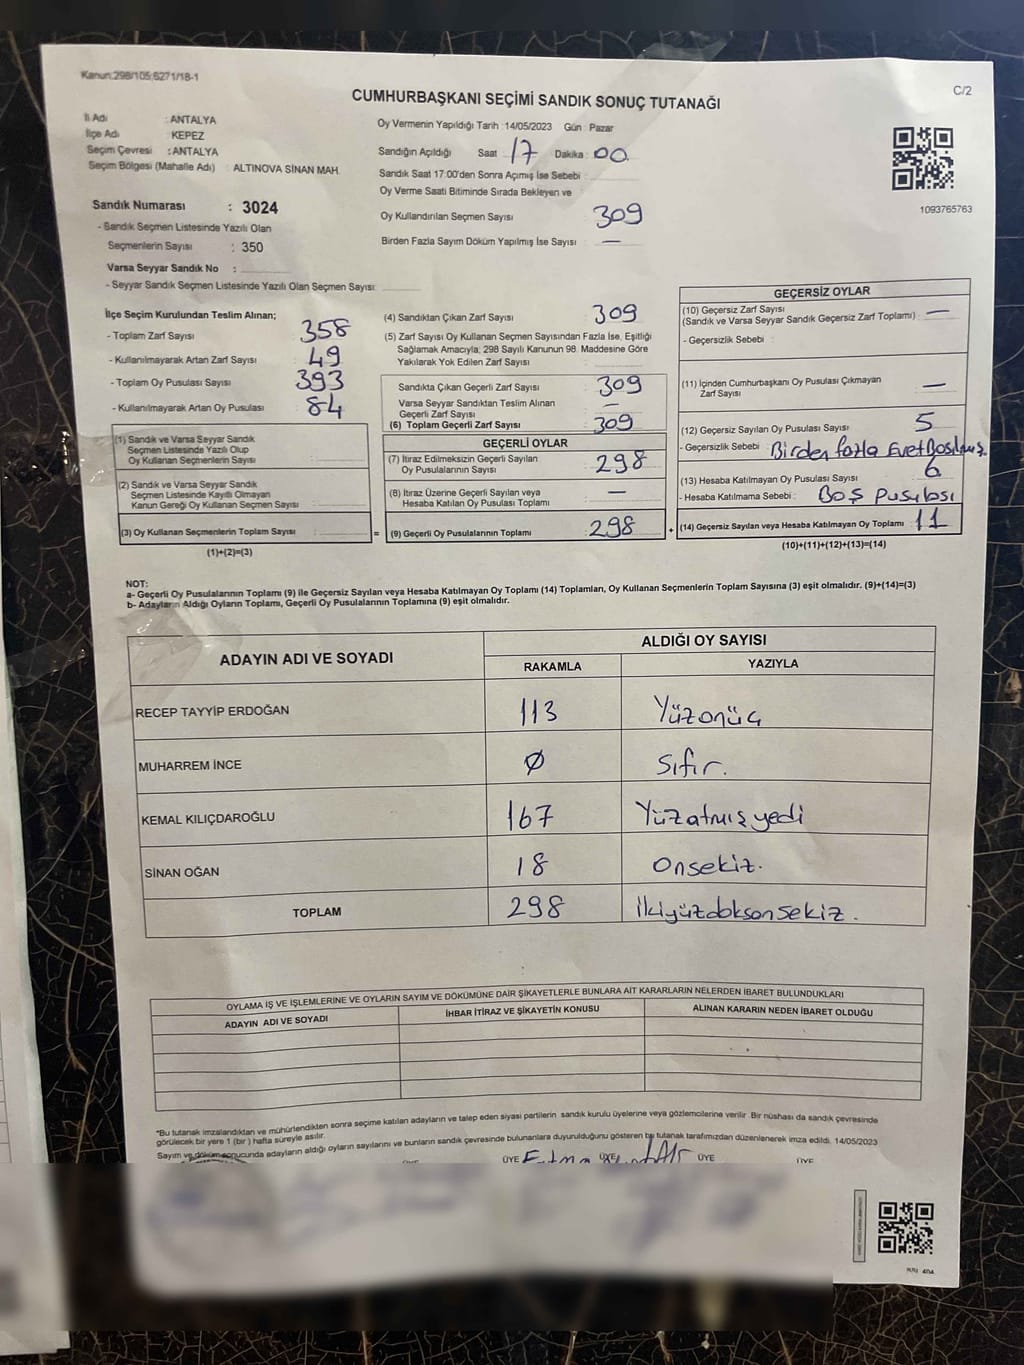 Kanun:298/105;6271/18-1
C/2
CUMHURBAŞKANI SEÇİMİ SANDIK SONUÇ TUTANAĞI
İl Adı : ANTALYA
İlçe Adı : KEPEZ
Seçim Çevresi : ANTALYA
Seçim Bölgesi (Mahalle Adı) : ALTINOVA SİNAN MAH.
Sandık Numarası : 3024
- Sandık Seçmen Listesinde Yazılı Olan
Seçmenlerin Sayısı : 350
Varsa Seyyar Sandık No :
- Seyyar Sandık Seçmen Listesinde Yazılı Olan Seçmen Sayısı:
Oy Vermenin Yapıldığı Tarih :14/05/2023 Gün : Pazar
Sandığın Açıldığı Saat : 17 Dakika : 00
Sandık Saat 17:00'den Sonra Açımış İse Sebebi :
Oy Verme Saati Bitiminde Sırada Bekleyen ve
Oy Kullandırılan Seçmen Sayısı 309
Birden Fazla Sayım Döküm Yapılmış İse Sayısı : —
1093765763
İlçe Seçim Kurulundan Teslim Alınan;
- Toplam Zarf Sayısı : 358
- Kullanılmayarak Artan Zarf Sayısı : 49
- Toplam Oy Pusulası Sayısı : 393
- Kullanılmayarak Artan Oy Pusulası : 84
(1) Sandık ve Varsa Seyyar Sandık
Seçmen Listesinde Yazılı Olup
Oy Kullanan Seçmenlerin Sayısı :
(2) Sandık ve Varsa Seyyar Sandık
Seçmen Listesinde Kayıtlı Olmayan
Kanun Gereği Oy Kullanan Seçmen Sayısı :
(3) Oy Kullanan Seçmenlerin Toplam Sayısı :
(1)+(2)=(3)
(4) Sandıktan Çıkan Zarf Sayısı : 309
(5) Zarf Sayısı Oy Kullanan Seçmen Sayısından Fazla İse, Eşitliği
Sağlamak Amacıyla; 298 Sayılı Kanunun 98. Maddesine Göre
Yakılarak Yok Edilen Zarf Sayısı :
Sandıkta Çıkan Geçerli Zarf Sayısı : 309
Varsa Seyyar Sandıktan Teslim Alınan
Geçerli Zarf Sayısı : —
(6) Toplam Geçerli Zarf Sayısı : 309
GEÇERLİ OYLAR
(7) İtiraz Edilmeksizin Geçerli Sayılan
Oy Pusulalarının Sayısı : 298
(8) İtiraz Üzerine Geçerli Sayılan veya
Hesaba Katılan Oy Pusulası Toplamı : —
= (9) Geçerli Oy Pusulalarının Toplamı : 298
GEÇERSİZ OYLAR
(10) Geçersiz Zarf Sayısı
(Sandık ve Varsa Seyyar Sandık Geçersiz Zarf Toplamı) : —
- Geçersizlik Sebebi :
(11) İçinden Cumhurbaşkanı Oy Pusulası Çıkmayan
Zarf Sayısı : —
(12) Geçersiz Sayılan Oy Pusulası Sayısı : 5
- Geçersizlik Sebebi : Birden fazla Evet Basılmış.
(13) Hesaba Katılmayan Oy Pusulası Sayısı : 6
- Hesaba Katılmama Sebebi : Boş Pusulası
+ (14) Geçersiz Sayılan veya Hesaba Katılmayan Oy Toplamı : 11
(10)+(11)+(12)+(13)=(14)
NOT:
a- Geçerli Oy Pusulalarının Toplamı (9) ile Geçersiz Sayılan veya Hesaba Katılmayan Oy Toplamı (14) Toplamları, Oy Kullanan Seçmenlerin Toplam Sayısına (3) eşit olmalıdır. (9)+(14)=(3)
b- Adayların Aldığı Oyların Toplamı, Geçerli Oy Pusulalarının Toplamına (9) eşit olmalıdır.
ADAYIN ADI VE SOYADI
ALDIĞI OY SAYISI
RAKAMLA YAZIYLA
RECEP TAYYİP ERDOĞAN 113 Yüzonüç
MUHARREM İNCE 0 Sıfır.
KEMAL KILIÇDAROĞLU 167 Yüzatmışyedi
SİNAN OĞAN 18 Onsekiz.
TOPLAM 298 İkiyüzdoksonsekiz.
OYLAMA İŞ VE İŞLEMLERİNE VE OYLARIN SAYIM VE DÖKÜMÜNE DAİR ŞİKAYETLERLE BUNLARA AİT KARARLARIN NELERDEN İBARET BULUNDUKLARI
ADAYIN ADI VE SOYADI İHBAR İTİRAZ VE ŞİKAYETİN KONUSU ALINAN KARARIN NEDEN İBARET OLDUĞU
*Bu tutanak imzalandıktan ve mühürlendikten sonra seçime katılan adayların ve talep eden siyasi partilerin sandık kurulu üyelerine veya gözlemcilerine verilir. Bir nüshası da sandık çevresinde
görülecek bir yere 1 (bir) hafta süreyle asılır.
Sayım ve döküm sonucunda adayların aldığı oyların sayılarını ve bunların sandık çevresinde bulunanlara duyurulduğunu gösteren bu tutanak tarafımızdan düzenlenerek imza edildi. 14/05/2023
ÜYE ÜYE ÜYE ÜYE ÜYE